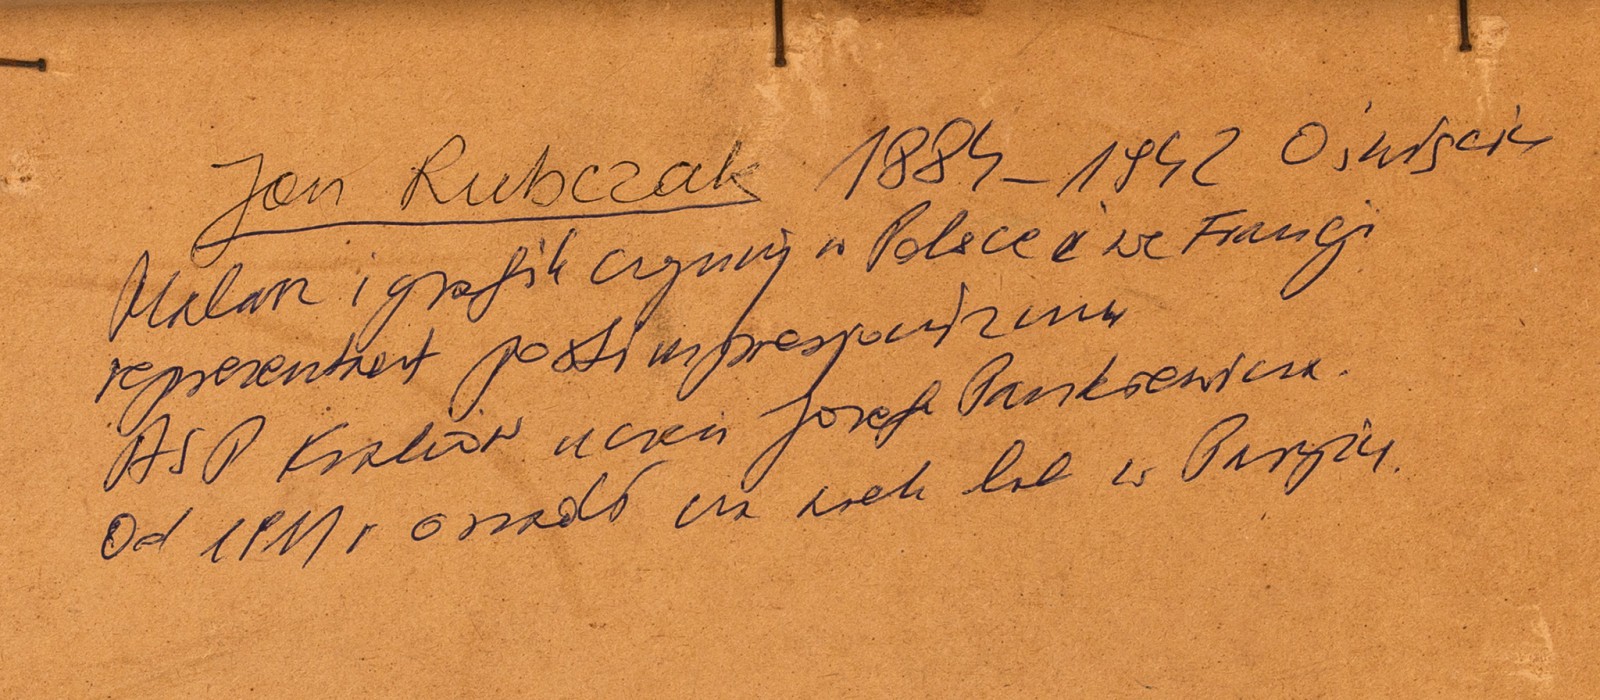 Jan Rubczak 1884-1942 Oświęcim
Malarz i grafik czynny w Polsce i we Francji
reprezentant postimpresjonizmu
ASP Kraków uczeń Józefa Pankiewicza.
Od 1911 r osiadł na wiele lat w Paryżu.